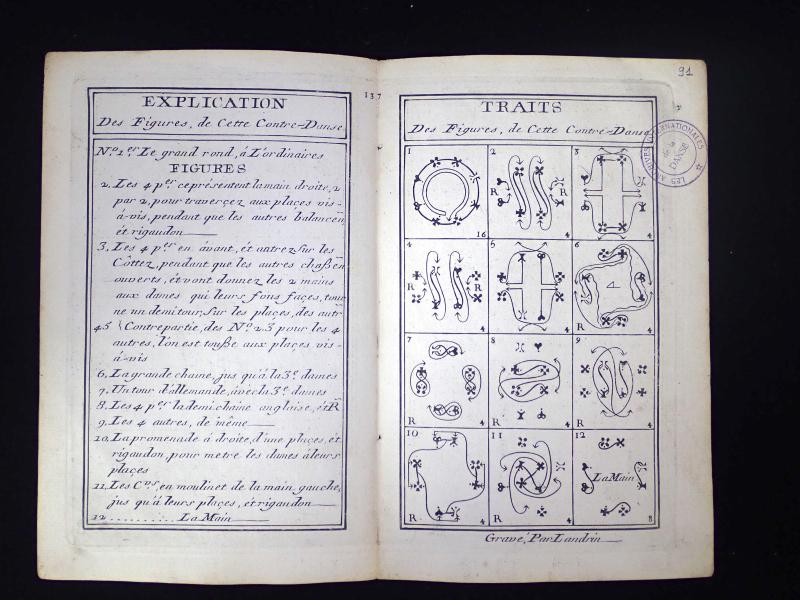 EXPLICATION
Des Figures, de Cette Contre-Danse
N.º 1.er Le grand rond, á L'ordinaires
FIGURES
2. Les 4 p.ers ce présentent la main droite, 2
par 2, pour traverçez aux plaçes vis-
á-vis, pendant que les autres balancen̄,
ét rigaudon
3. Les 4 p.ers en ávant, ét
sur les
Côttez, pendant que les autres chaßen̄
ouverts, ét vont donnez les 2 mains
aux dames qui leurs fons façes, tour
ne un demi tour, sur les plaçes, des autr
45 Contrepartie, des N.º 2.3 pour les 4
autres, l'on est touße aux plaçes vis-
á-vis
6. La grande chaine, jus qu'á la 3.e dames
7. Un tour d'allemande, ávec la 3.e dames
8. Les 4 p.ers la demi chaine anglaise, ét R
9. Les 4 autres, de même
10. La promenade á droite, d'une plaçes, ét
rigaudon, pour metre les dames á leurs
plaçes
11. Les C.ers en moulinet de la main gauche,
jus qu'á leurs plaçes, ét rigaudon
12 .......... La Main
137
91
TRAITS
Des Figures, de Cette Contre-Danse
LES ARCHIVES INTERNATIONALES
de la
DANSE
1
16
2
R
R
4
3
4
4
R
R
4
5
4
6
R
4
7
R
4
8
4
9
R
4
10
R
4
11
R
4
12
La Main
8
Gravé, Par Landrin